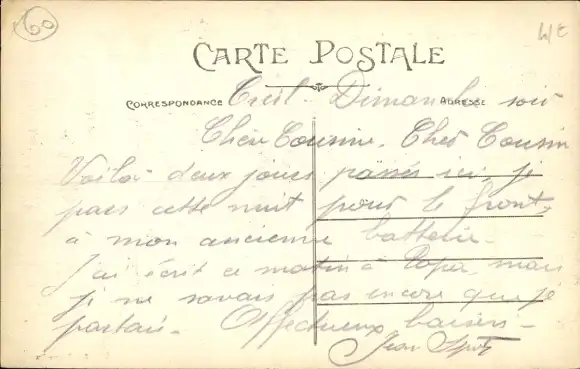 60
CARTE POSTALE
CORRESPONDANCE
ADRESSE
Creil - Dimanche soir
Chère Cousine, Cher Cousin
Voilà deux jours passés ici, je
pars cette nuit pour le front,
à mon ancienne batterie -
J'ai écrit ce matin à Papa, mais
je ne savais pas encore que je
partais - Affectueux baisers -
Jean